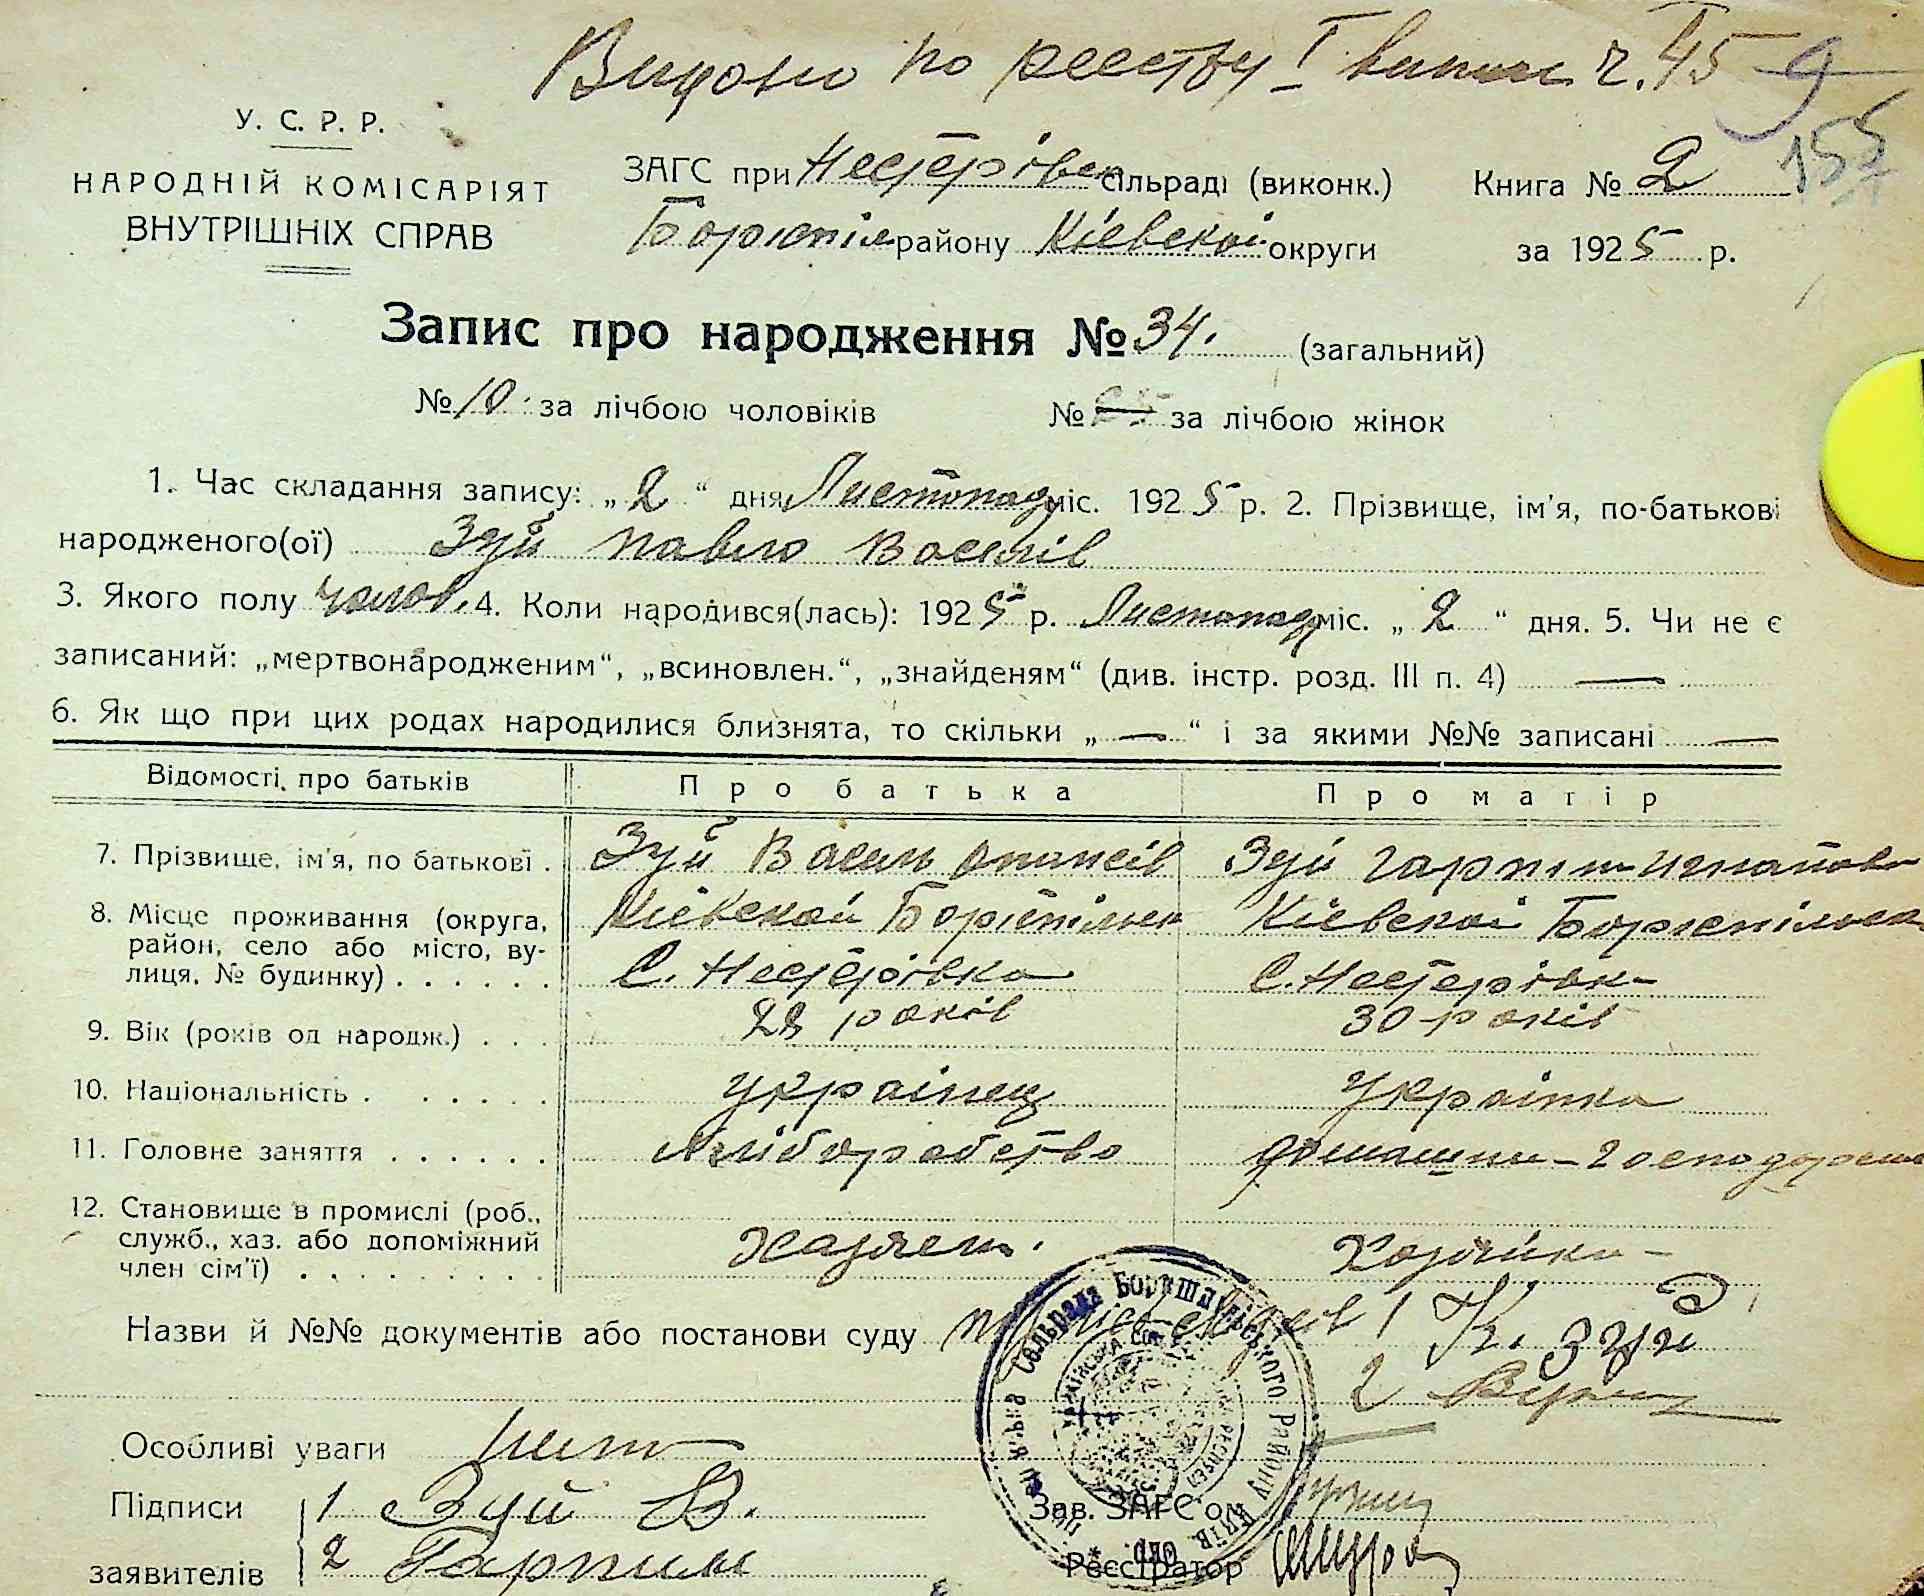 Видано по реєстру I випис ч. 45 9
155
У. С. Р. Р.
НАРОДНІЙ КОМІСАРІЯТ
ВНУТРІШНІХ СПРАВ
ЗАГС при Нестерівск сільраді (виконк.) Книга № 2
Борiспiл району Кіевскоі округи за 1925 р.
Запис про народження № 34. (загальний)
№ 10 за лічбою чоловіків № за лічбою жінок
1. Час складання запису: „2“ дня Листопад міс. 1925 р. 2. Прізвище, ім'я, по-батькові
народженого(ої) Зуй Павло Василів
3. Якого полу чолов. 4. Коли народився(лась): 1925 р. Листопад міс. „2“ дня. 5. Чи не є
записаний: „мертвонародженим“, „всиновлен.“, „знайденям“ (див. інстр. розд. III п. 4) —
6. Як що при цих родах народилися близнята, то скільки „—“ і за якими №№ записані —
Відомості про батьків Про батька Про матір
7. Прізвище, ім'я, по батькові . Зуй Василь Зуй Гарпина Игнатова
8. Місце проживання (округа, Кіевскоі Боріспільск Кіевскоі Боріспільск
район, село або місто, ву-
лиця, № будинку) . . . . . . С. Нестерівка С. Нестерівка
9. Вік (років од народж.) . . . років 30 років
10. Національність . . . . . . украінец Украінка
11. Головне заняття . . . . . . хліборобство домашня-господарка
12. Становище в промислі (роб.,
служб., хаз. або допоміжний Хазяен. Хозяйка-
член сім'ї) . . . . . . . . .
Назви й №№ документів або постанови суду 1 К. Зуй
2
Особливі уваги нет
Підписи 1 Зуй В. Зав. ЗАГС'ом
заявителів 2 Гарпина Реєстратор
Сельрада Района